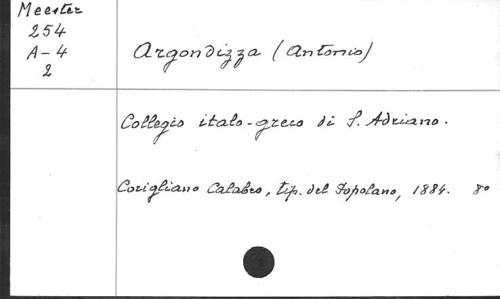 Meester
254
A-4
2
Argondizza (Antonio)
Collegio italo-greco di S. Adriano.
Corigliano Calabro, tip. del Popolano, 1884. 8°